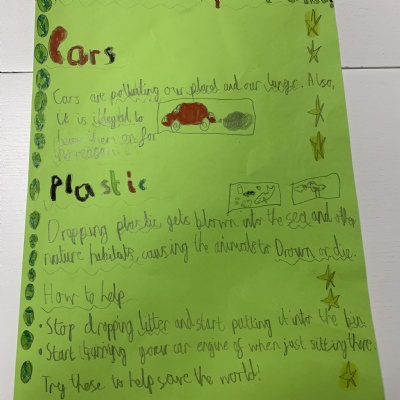 Cars
Cars are polluting our planet and our lungs. Also,
it is illegal to
them on for
Plastic
Dropping plastic gets blown into the sea and other
nature habitats, causing the animals to Drown or die.
How to help
• Stop dropping litter and start putting it into the bin
• Start turning your car engine of when just sitting there.
Try these to help save the world!